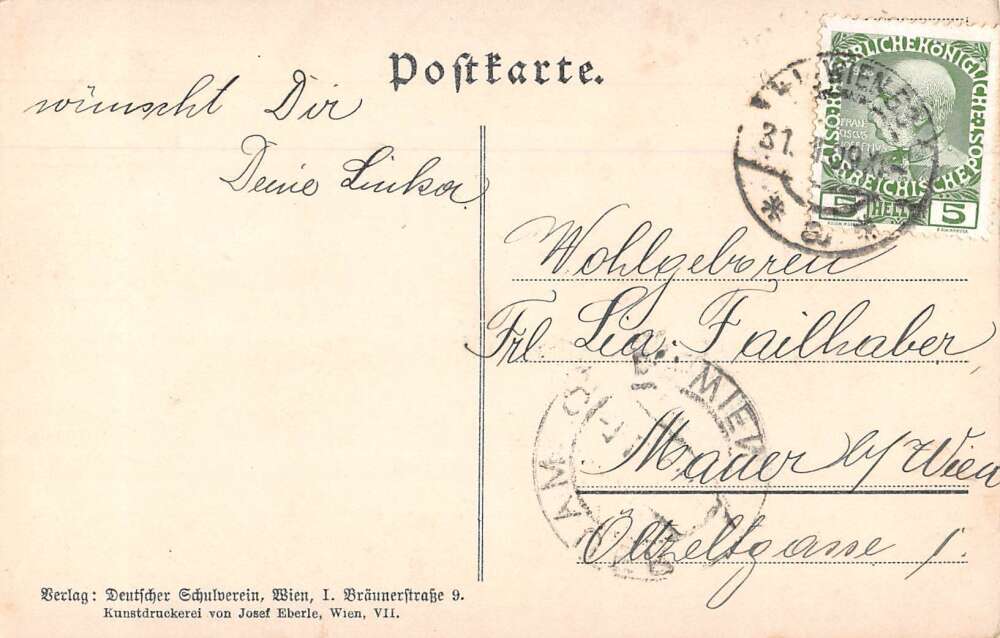 Postkarte.
wünscht Dir
Deine Linka
KAISERLICHE KÖNIGLICHE ÖSTERREICHISCHE POST
FRAN
CISCUS
JOSEPHUS
5 HELLER 5
WIEN
31.
Wohlgeboren
Frl. Lia Failhaber
Mauer b/Wien
Ölzeltgasse 1.
MAUER BEI WIEN
Verlag: Deutscher Schulverein, Wien, I. Bräunerstraße 9.
Kunstdruckerei von Josef Eberle, Wien, VII.